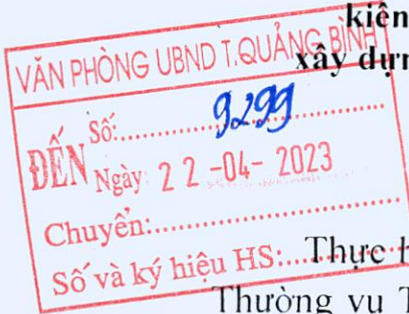 kiên
xây dựn
VĂN PHÒNG UBND T.QUẢNG BÌNH
ĐẾN
Số:.........9299.........
Ngày: 22-04-2023
Chuyển:.........
Số và ký hiệu HS:.........
Thực h
Thường vụ T